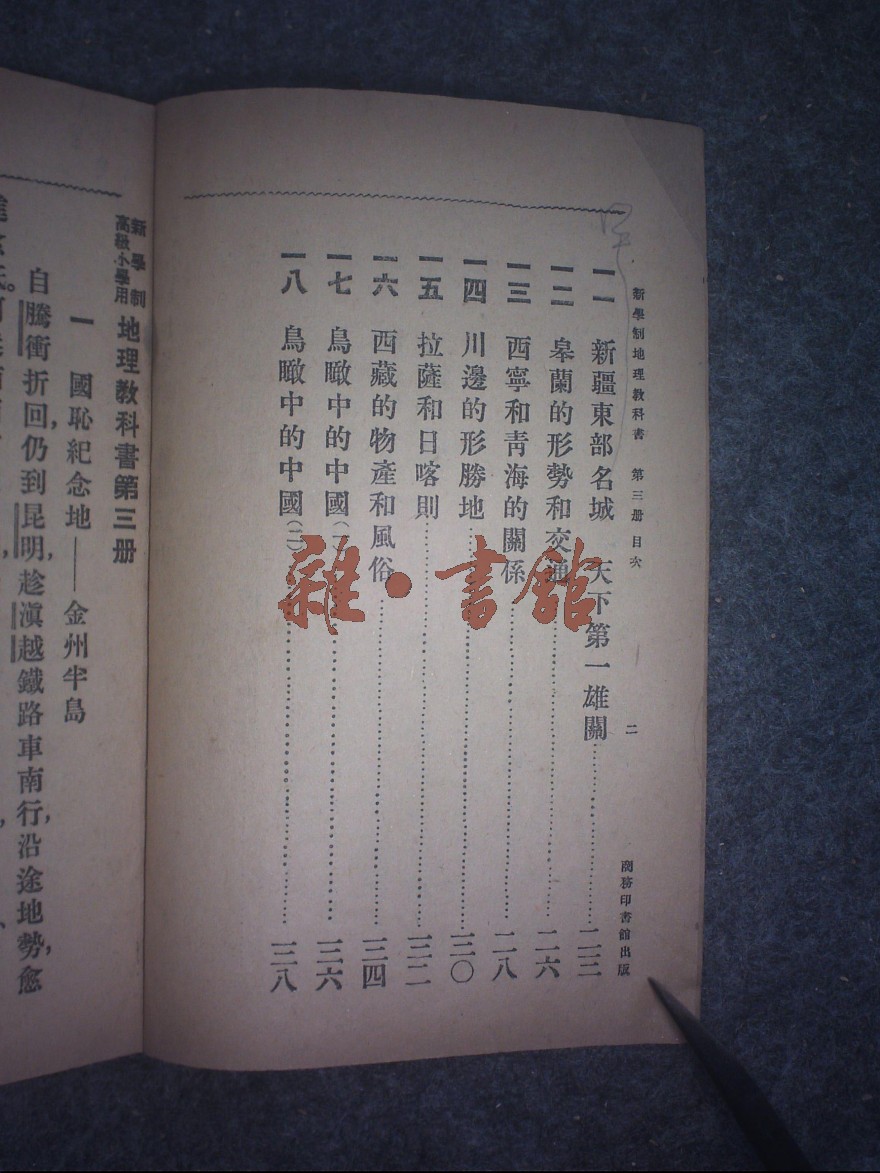 新學制地理教科書 第三册 目次 二 商務印書館出版
一一 新疆東部名城 天下第一雄關 二三
一二 皋蘭的形勢和交通 二六
一三 西寧和靑海的關係 二八
一四 川邊的形勝地 三〇
一五 拉薩和日喀則 三二
一六 西藏的物產和風俗 三四
一七 鳥瞰中的中國(一) 三六
一八 鳥瞰中的中國(二) 三八
雜·書館
新學制
高級小學用
地理教科書第三册
一 國恥紀念地——金州半島
自騰衝折回,仍到昆明,趁滇越鐵路車南行,沿途地勢,愈